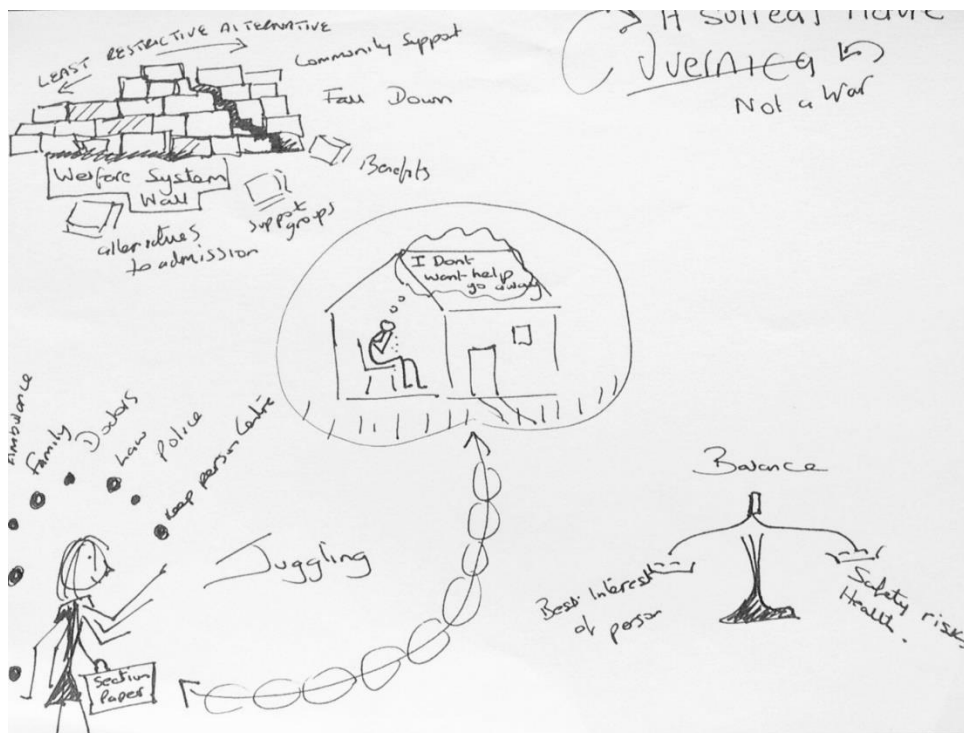 LEAST RESTRICTIVE ALTERNATIVE
Community Support
Fall Down
Benefits
Welfare System
Wall
support
groups
alternatives
to admission
A Surreal
Not a War
I Dont
want help
go away
Ambulance
Family
Doctors
Law
Police
Keep person Centre
Juggling
Section
Paper
Balance
Best Interest
of person
Safety risks
Health.